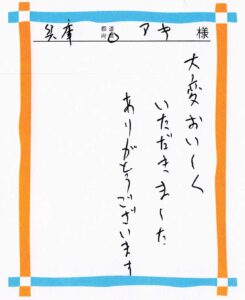 兵庫 都道府県 アキ 様
大変おいしく
いただきました
ありがとうございます